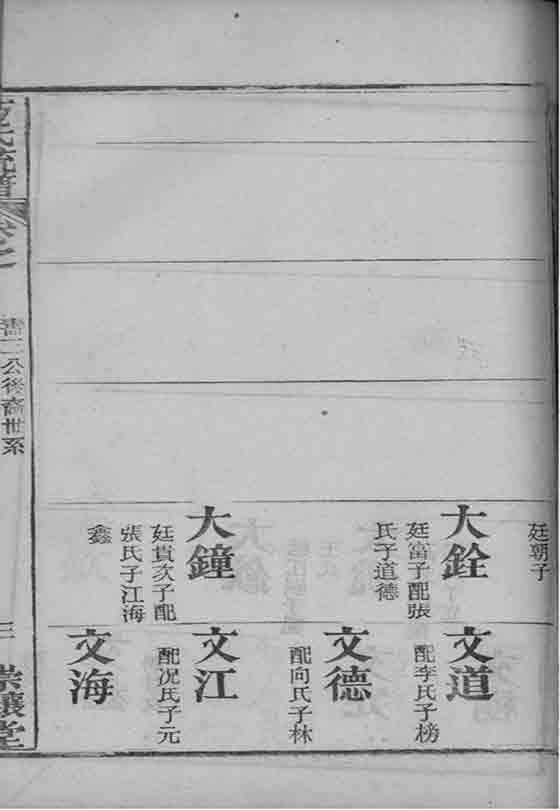 廷朝子
大銓
廷富子配張
氏子道德
大鐘
廷貴次子配
張氏子江海
鑫
文道
配李氏子榜
文德
配向氏子林
文江
配况氏子元
文海
氏流
卷之
三公後裔世系
三
堂